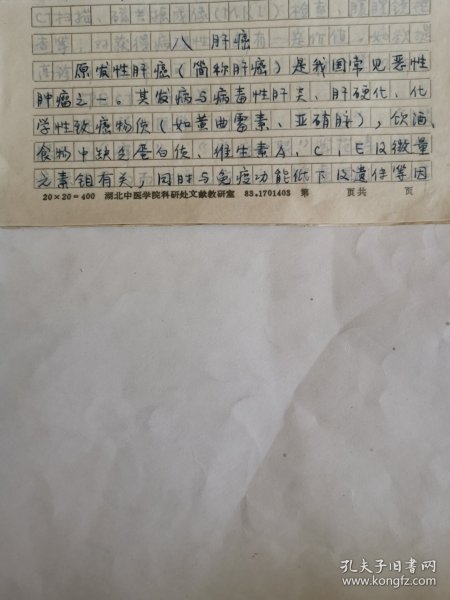 CT扫描、磁共振成像(MRI)检查、
八 肝癌
原发性肝癌(简称肝癌)是我国常见恶性
肿瘤之一。其发病与病毒性肝炎、肝硬化、化
学性致癌物质(如黄曲霉素、亚硝胺),饮酒、
食物中缺乏蛋白质、维生素A、C、E及微量
元素钼有关,同时与免疫功能低下及遗传等因
20×20=400 湖北中医学院科研处文献教研室 83.1701403 第 页共 页
孔夫子旧书网
www.kongfz.com